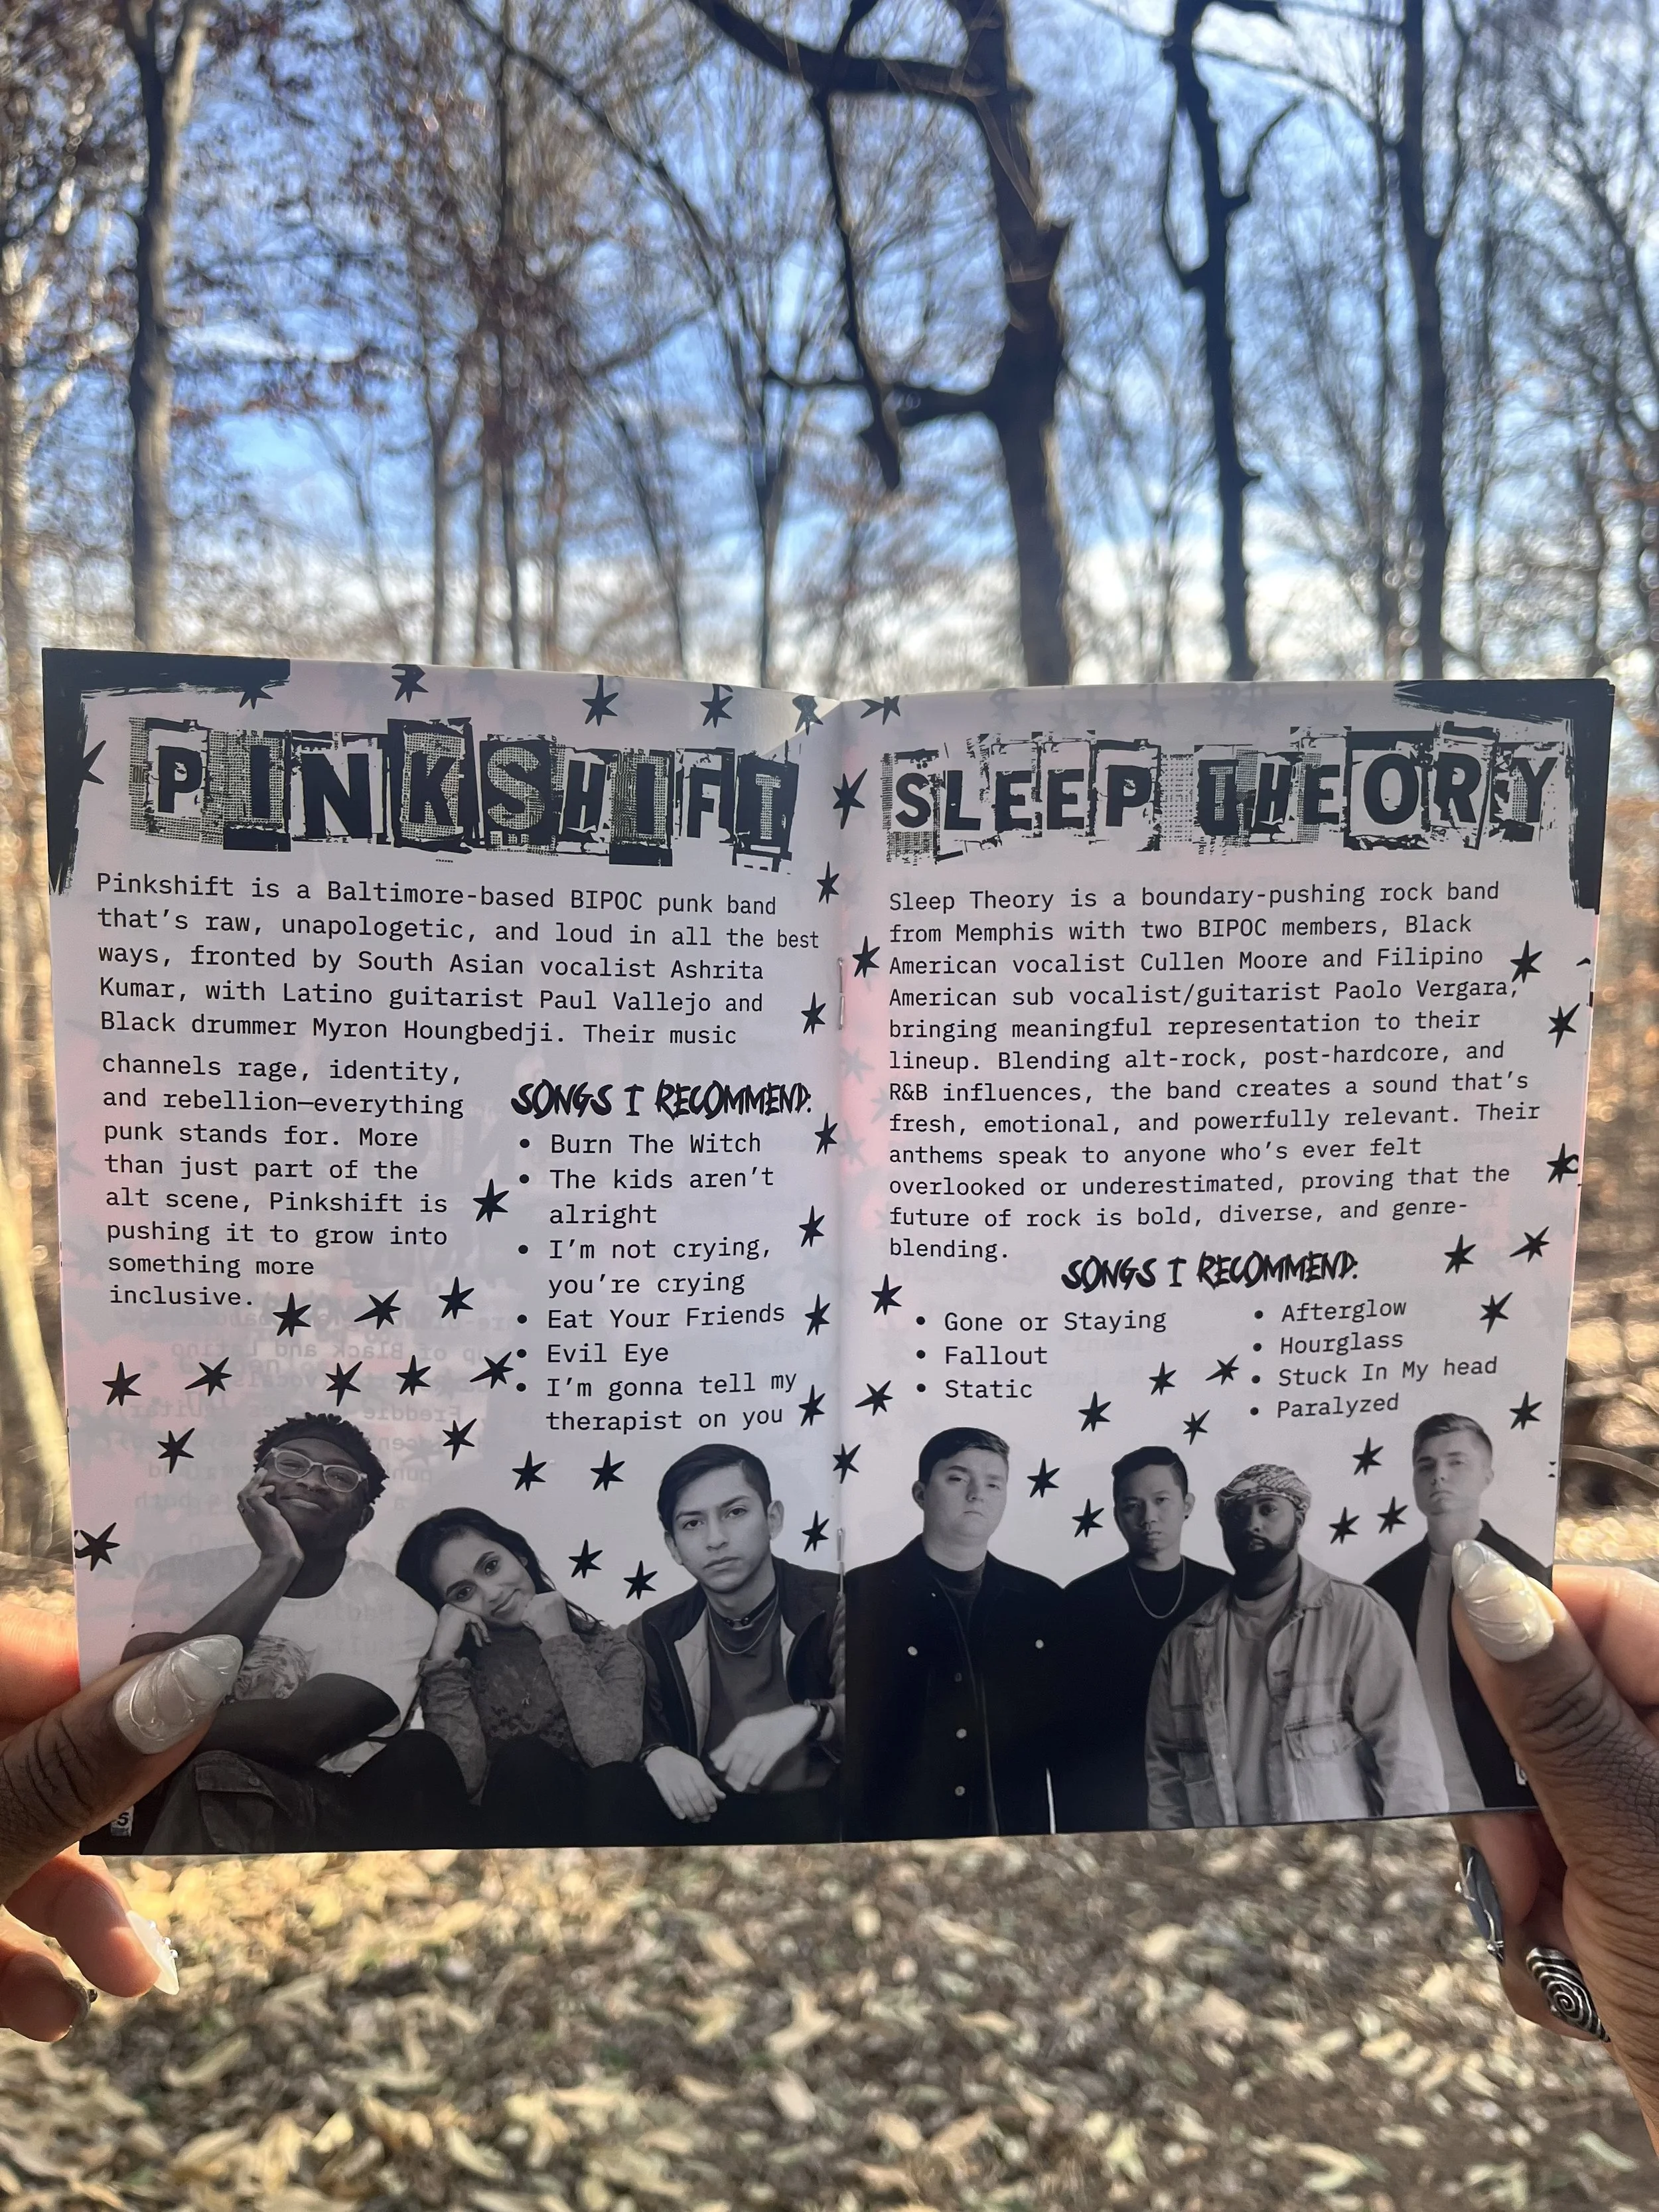 PINKSHIFT
Pinkshift is a Baltimore-based BIPOC punk band
that's raw, unapologetic, and loud in all the best
ways, fronted by South Asian vocalist Ashrita
Kumar, with Latino guitarist Paul Vallejo and
Black drummer Myron Houngbedji. Their music
channels rage, identity,
and rebellion—everything
punk stands for. More
than just part of the
alt scene, Pinkshift is
pushing it to grow into
something more
inclusive.
SONGS I RECOMMEND:
• Burn The Witch
• The kids aren't
alright
• I'm not crying,
you're crying
• Eat Your Friends
• Evil Eye
• I'm gonna tell my
therapist on you
5
SLEEP THEORY
Sleep Theory is a boundary-pushing rock band
from Memphis with two BIPOC members, Black
American vocalist Cullen Moore and Filipino
American sub vocalist/guitarist Paolo Vergara,
bringing meaningful representation to their
lineup. Blending alt-rock, post-hardcore, and
R&B influences, the band creates a sound that's
fresh, emotional, and powerfully relevant. Their
anthems speak to anyone who's ever felt
overlooked or underestimated, proving that the
future of rock is bold, diverse, and genre-
blending.
SONGS I RECOMMEND:
• Gone or Staying
• Fallout
• Static
• Afterglow
• Hourglass
• Stuck In My head
• Paralyzed